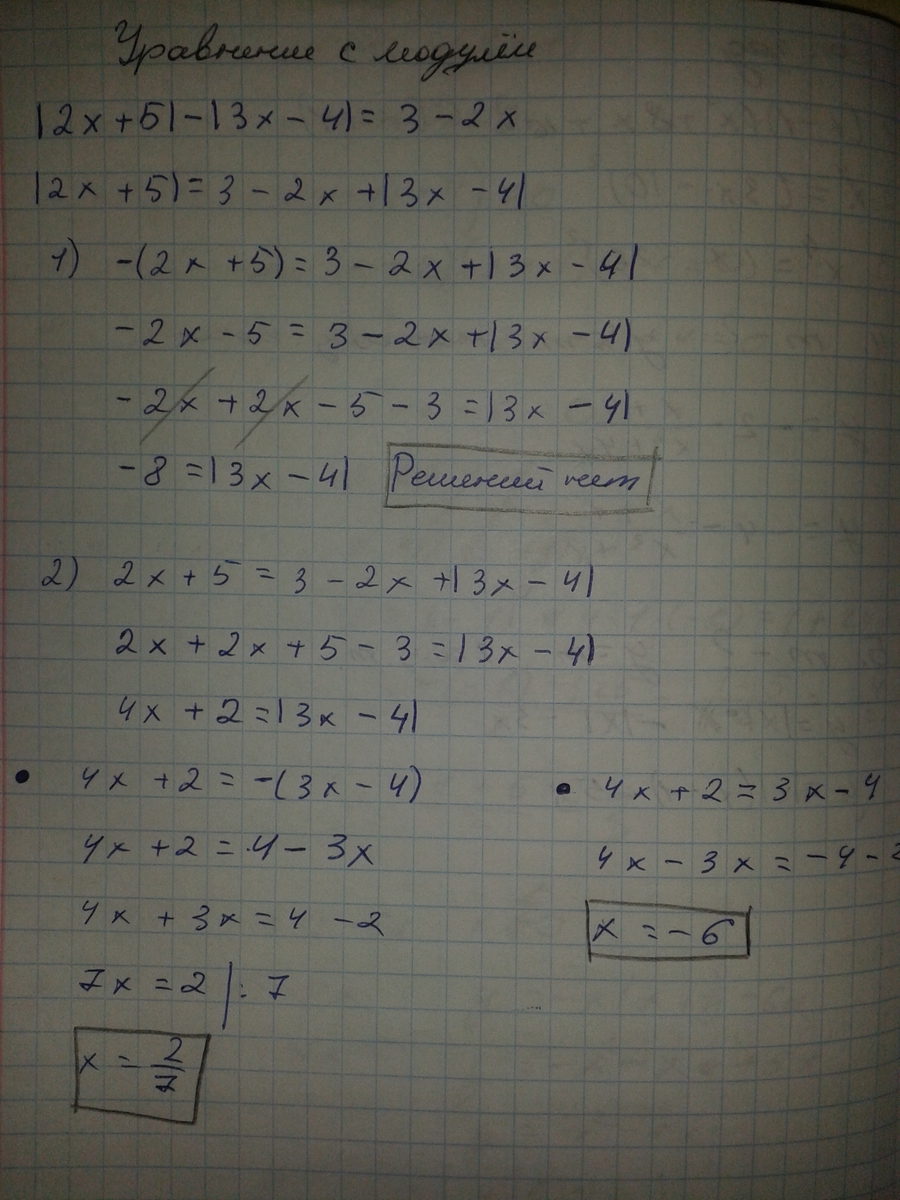 Уравнение с модулем
|2x+5|-|3x-4|= 3-2x
|2x+5|=3-2x+|3x-4|
1) -(2x+5)=3-2x+|3x-4|
-2x-5=3-2x+|3x-4|
-2x+2x-5-3=|3x-4|
-8=|3x-4| Решений нет
2) 2x+5=3-2x+|3x-4|
2x+2x+5-3=|3x-4|
4x+2=|3x-4|
• 4x+2=-(3x-4)
4x+2=4-3x
4x+3x=4-2
7x=2 |:7
x=2/7
• 4x+2=3x-4
4x-3x=-4-2
x=-6